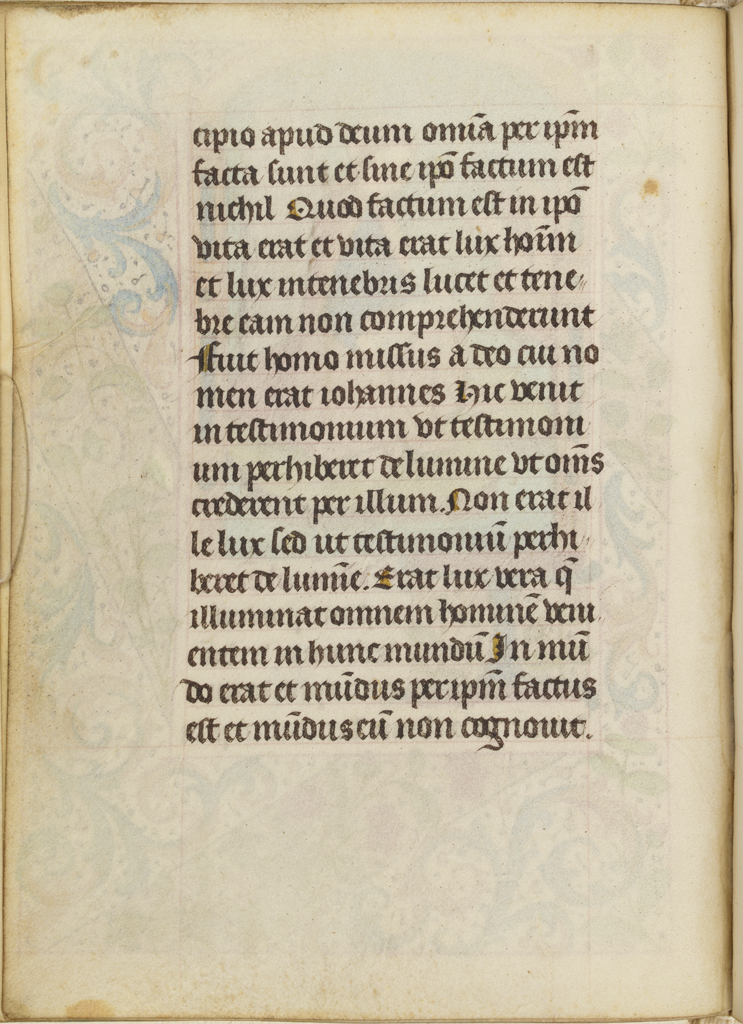 cipio apud deum omīa per ipm̄
facta sunt et sine ipō factum est
nichil Quod factum est in ipō
vita erat et vita erat lux hoīm
et lux in tenebris lucet et tene-
bre eam non comprehenderunt
Fuit homo missus a deo cui no
men erat iohannes Hic venit
in testimonium vt testimoni
um perhiberet de lumine vt om̄s
crederent per illum. Non erat il
le lux sed ut testimoniū perhi-
beret de lumīe. Erat lux vera q̄
illuminat omnem hominē veni
entem in hunc mundū In mū
do erat et mūdus per ipm̄ factus
est et mūdus eū non cognouit.